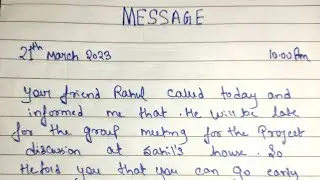 MESSAGE
21th March 2023 10:00 Am
Your friend Rahul called today and
informed me that. He will be late
for the group meeting for the Project
discussion at Sahil's house. So
He told you that you can go early